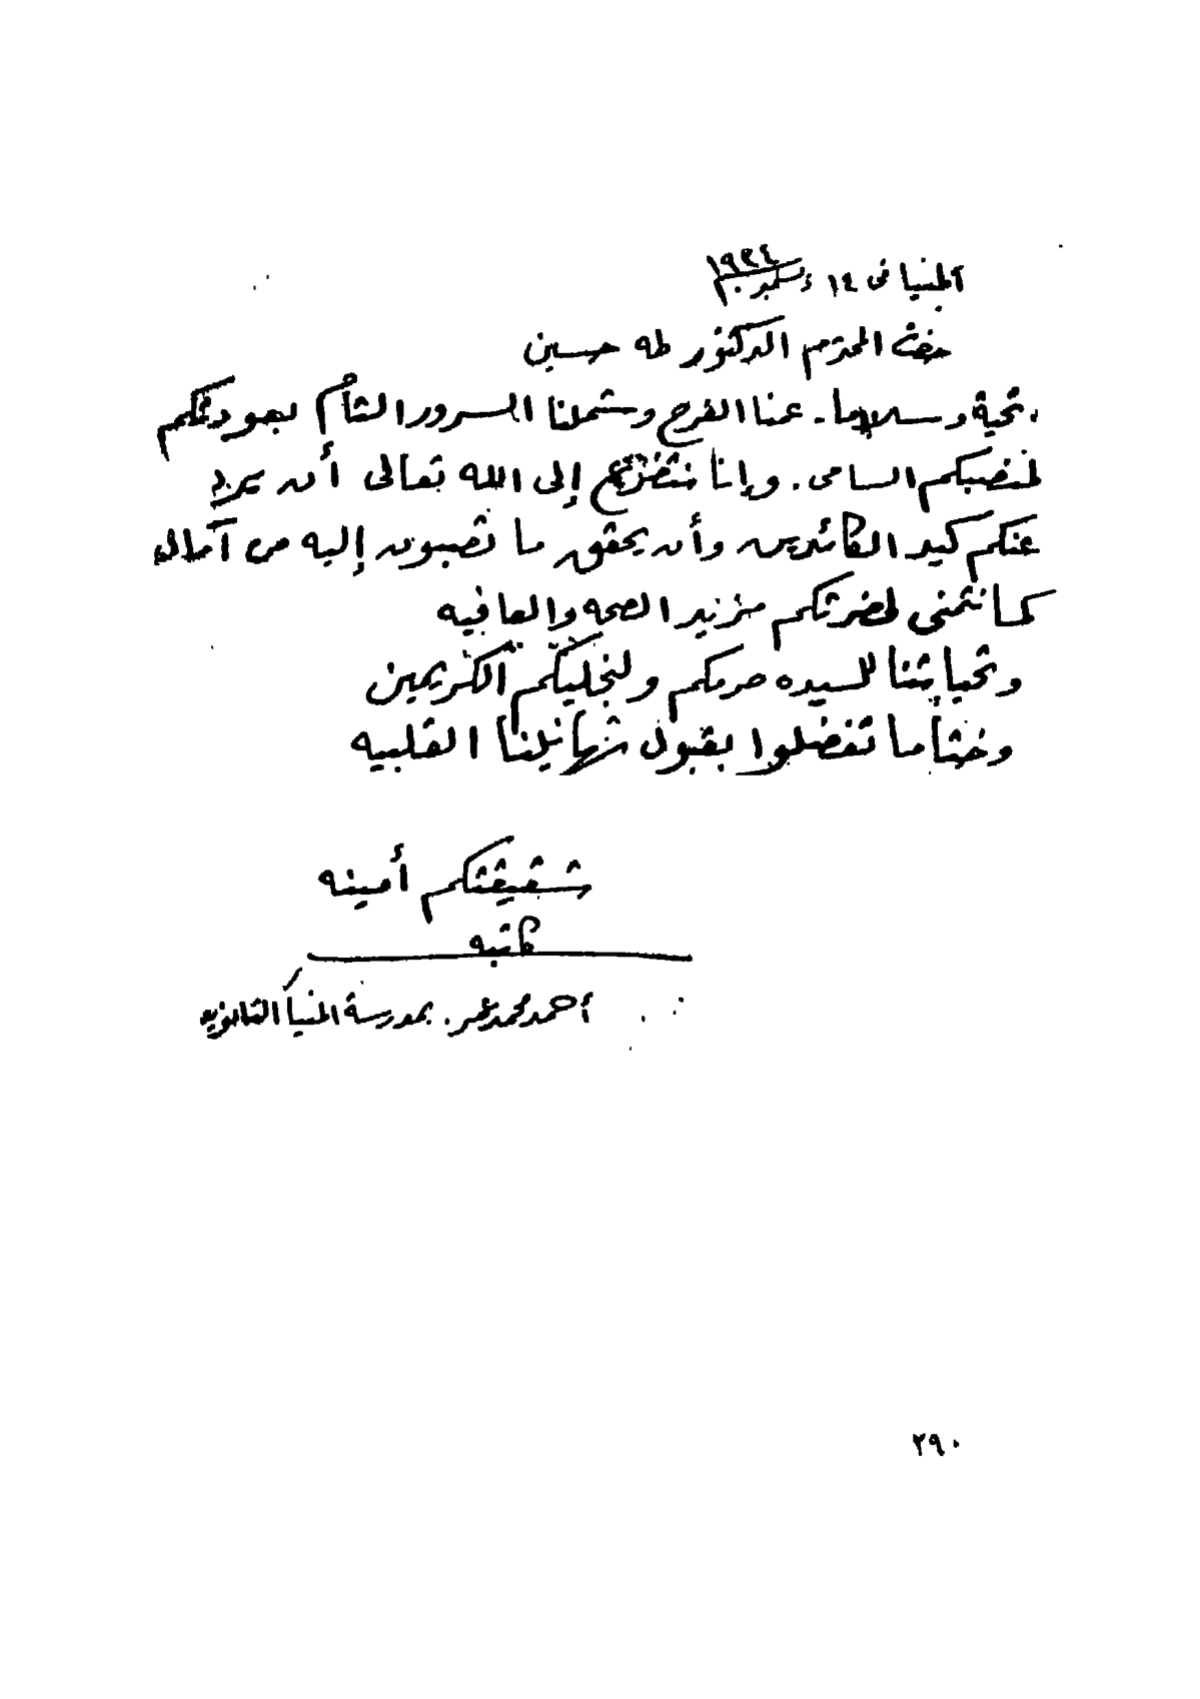 المنيا فى ١٤ ديسمبر ١٩٣٤
حضرت المحترم الدكتور طه حسين
تحية وسلاما . عمنا الفرح وشملنا السرور التام بعودتكم
لمنصبكم السامى . وإنا نتضرع إلى الله تعالى أن يرد
عنكم كيد الكائدين وأن يحقق ما تصبون إليه من آمال
كما نتمنى لحضرتكم مزيد الصحه والعافيه
وتحياتنا للسيده حرمكم ولنجليكم الكريمين
وختاما تفضلوا بقبول تهانينا القلبيه
شقيقتكم أمينه
كاتبه
أحمد محمد عمر . بمدرسة المنيا الثانويه
٢٩٠